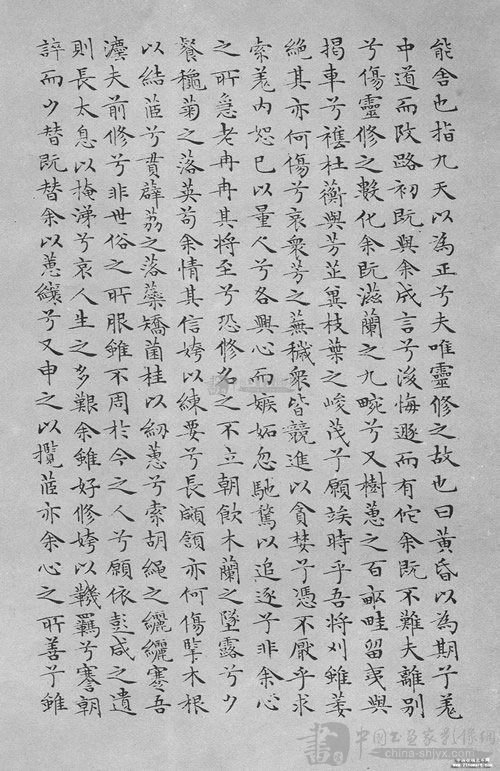 能舍也指九天以為正兮夫唯靈修之故也曰黃昏以為期兮羌
中道而改路初既與余成言兮後悔遁而有佗余既不難夫離別
兮傷靈修之數化余既滋蘭之九畹兮又樹蕙之百畝畦留夷與
揭車兮襍杜蘅與芳芷冀枝葉之峻茂兮願竢時乎吾將刈雖萎
絕其亦何傷兮哀衆芳之蕪穢衆皆競進以貪婪兮憑不厭乎求
索羌內恕己以量人兮各興心而嫉妬忽馳騖以追逐兮非余心
之所急老冉冉其將至兮恐修名之不立朝飲木蘭之墜露兮夕
餐秋菊之落英苟余情其信姱以練要兮長顑頷亦何傷擥木根
以結茝兮貫薜荔之落蘂矯菌桂以紉蕙兮索胡繩之纚纚謇吾
灋夫前修兮非世俗之所服雖不周於今之人兮願依彭咸之遺
則長太息以掩涕兮哀人生之多艱余雖好修姱以鞿羈兮謇朝
誶而夕替既替余以蕙纕兮又申之以攬茝亦余心之所善兮雖
中国书画家影像網
china-shiyx.com